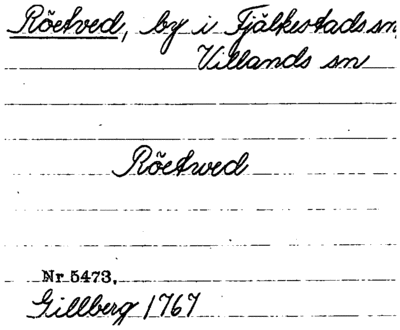 Röetved, by i Fjälkestads sn,
Villands sn
Röetwed
Nr 5473,
Gillberg 1767